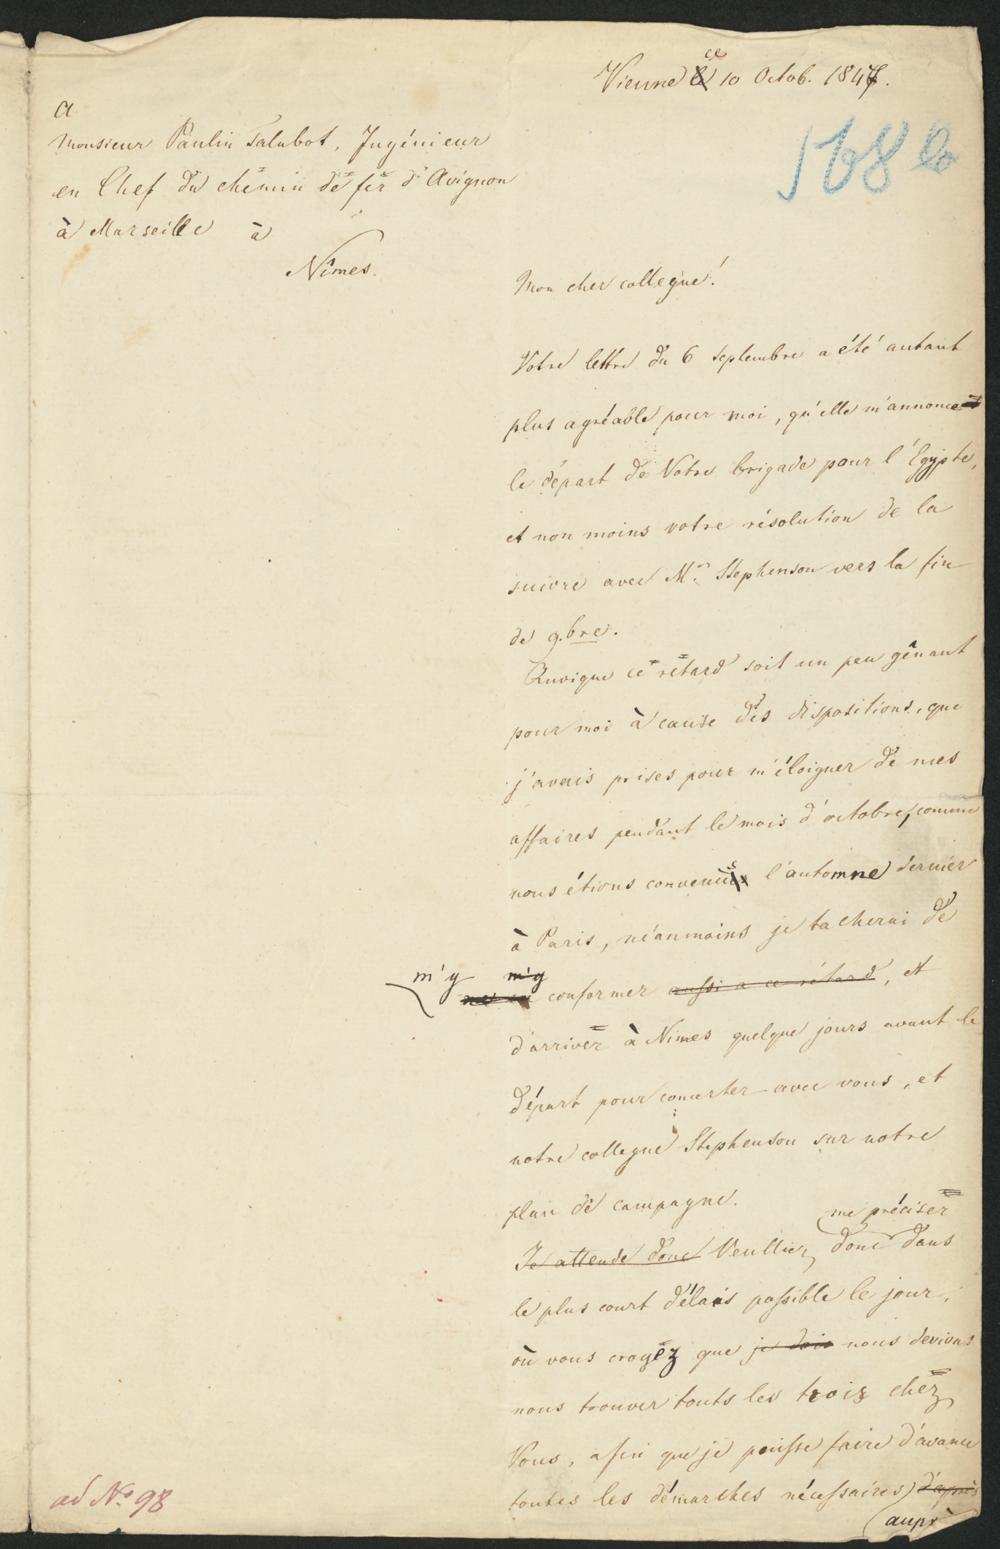 Vienne ce 10 Octob. 1847.
168 b
a
Monsieur Paulin Talabot, Ingénieur
en Chef du chemin de fer d'Avignon
à Marseille à
Nîmes.
Mon cher collegue!
Votre lettre du 6 septembre a été autant
plus agréable pour moi, qu'elle m'annonce
le départ de Votre brigade pour l'Egypte,
et non moins votre résolution de la
suivre avec Mr. Stephenson vers la fin
de 9.bre.
Quoique ce retard soit un peu gênant
pour moi à cause des dispositions, que
j'avais prises pour m'éloigner de mes
affaires pendant le mois d'octobre, comme
nous étions convenus l'automne dernier
à Paris, néanmoins je tacherai de
m'y m'y
conformer aussi a ce rétard, et
d'arriver à Nimes quelque jours avant le
départ pour concerter avec vous, et
notre collegue Stephenson sur notre
plan de campagne.
me préciser
Je attends donc Veuillez donc dans
le plus court délais possible le jour,
où vous croyez que je dois nous devions
nous trouver touts les trois chez
Vous, afin que je puisse faire d'avance
toutes les démarches nécessaires d'après
auprè
ad No. 98